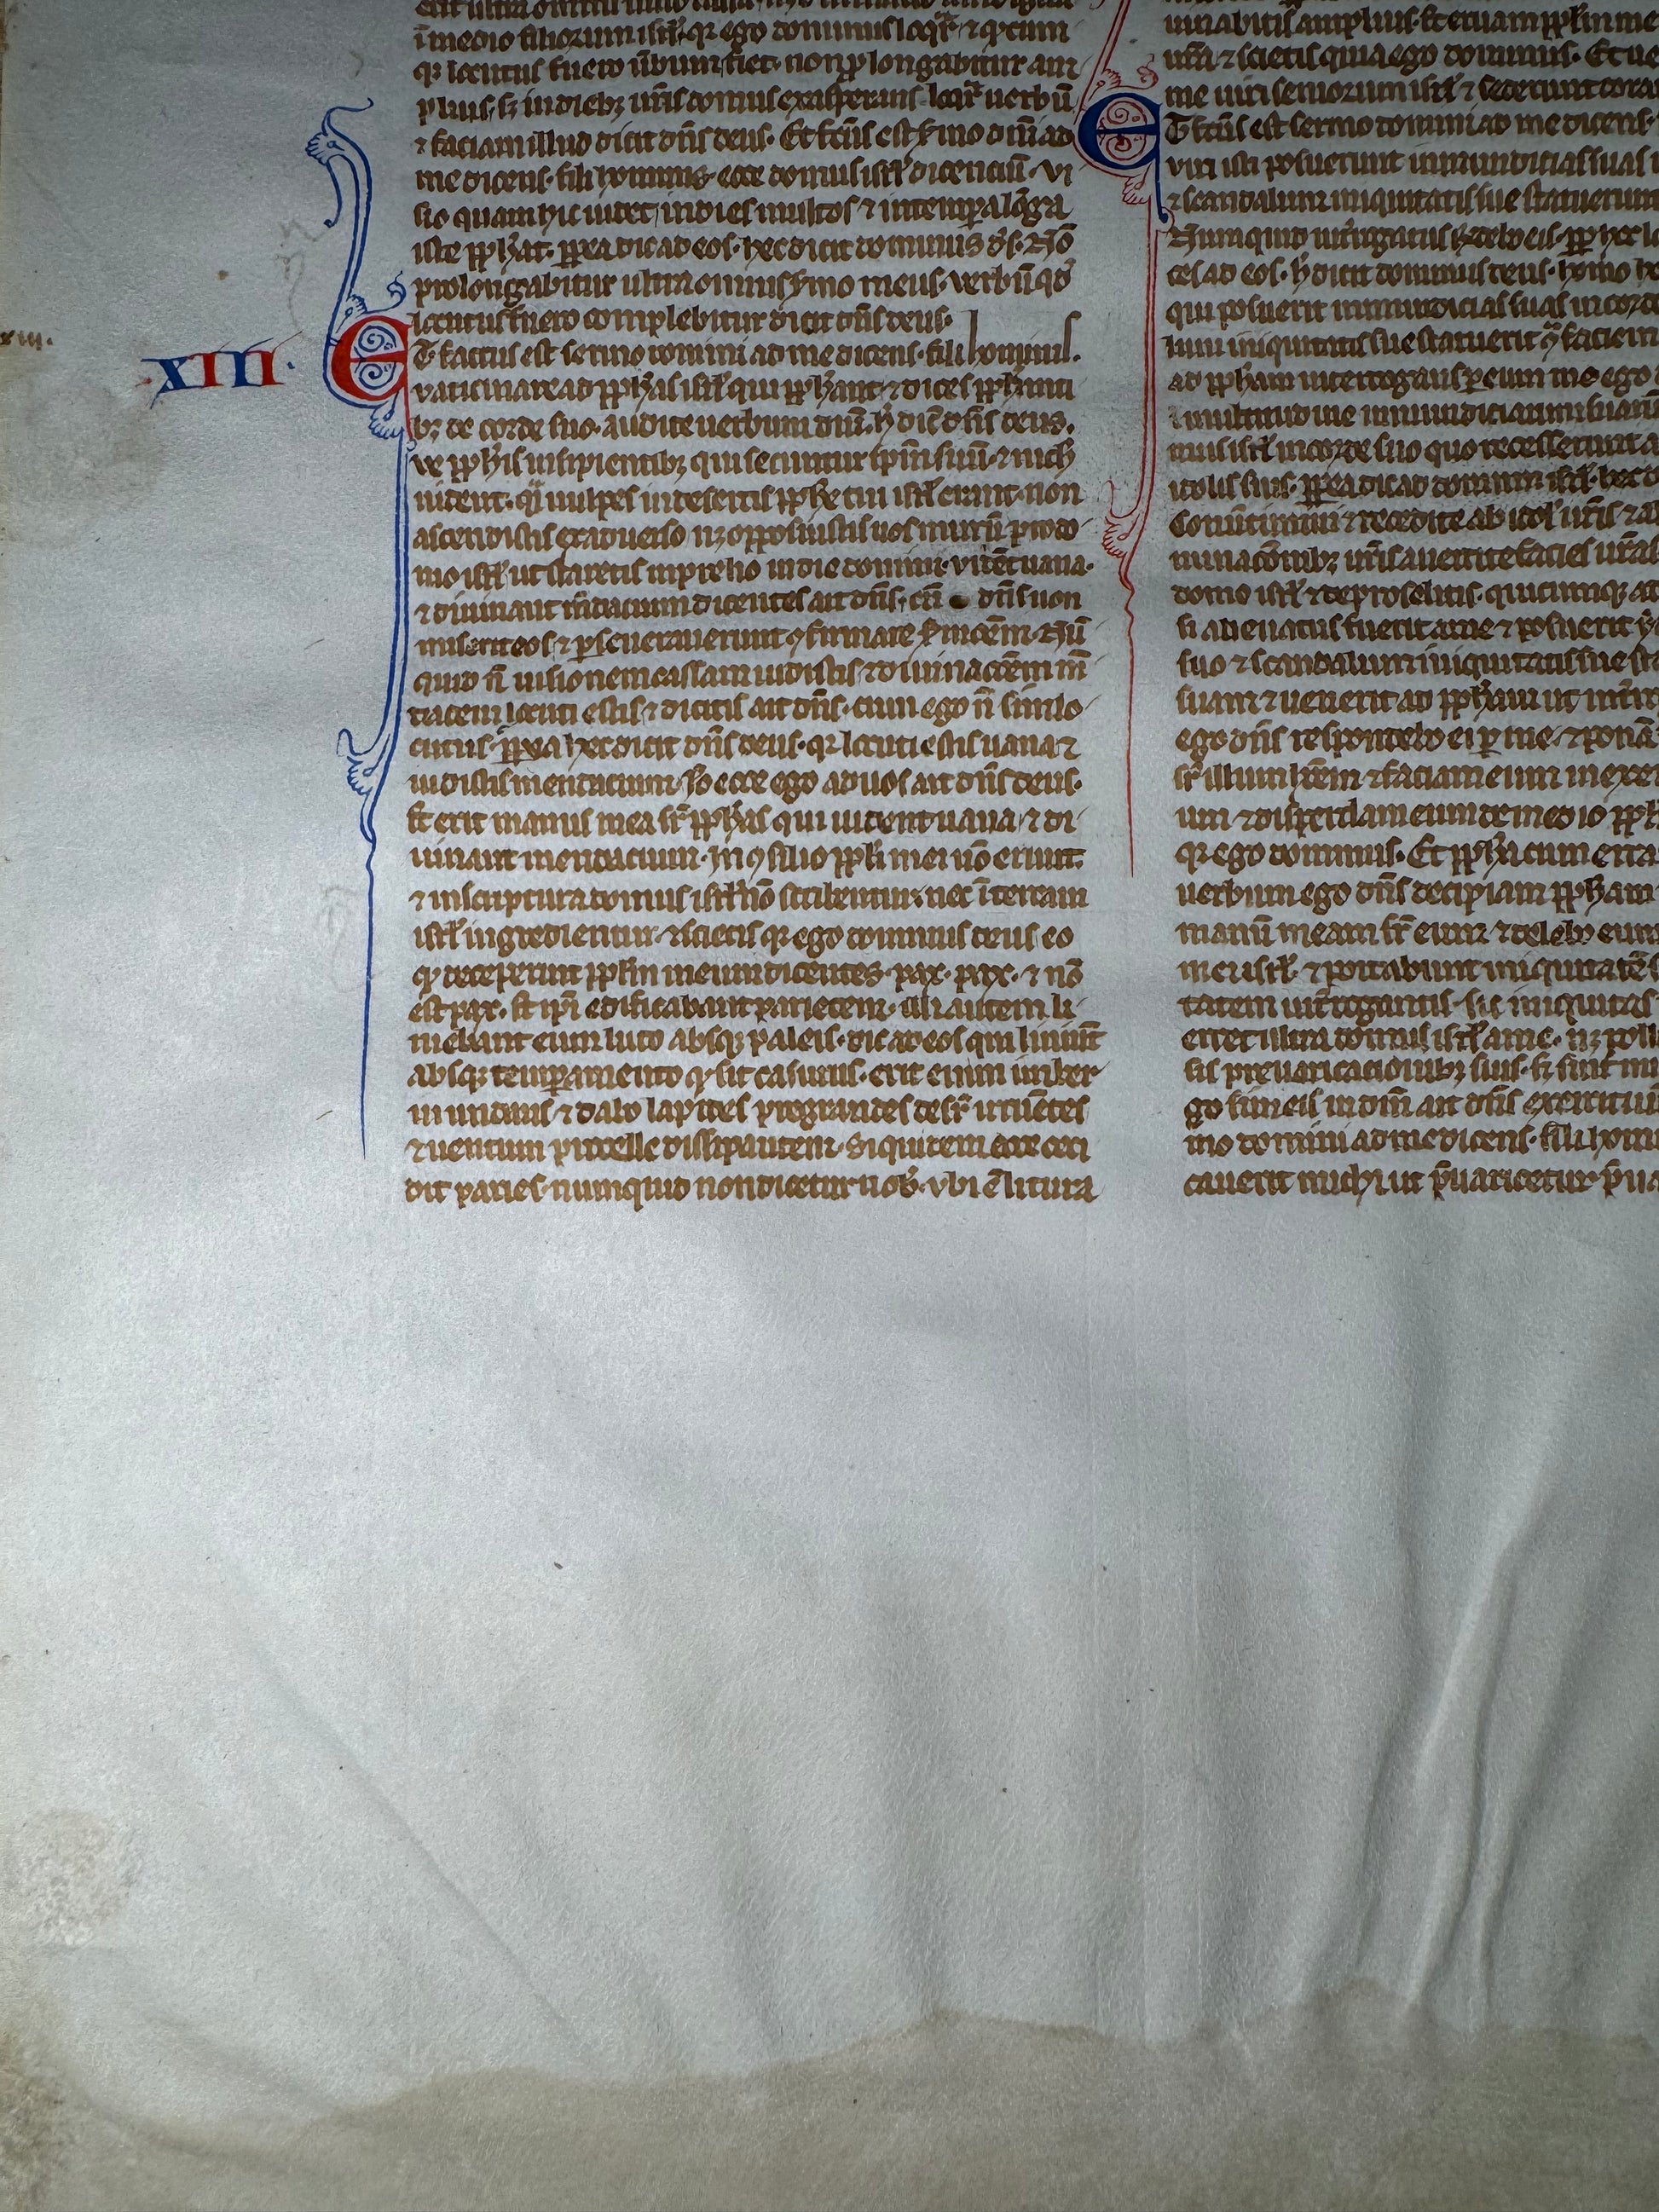 i medio filiorum isrl. qr ego dominus loqr. ⁊ qdcum
qr locutus fuero ūbum fiet. non ꝓlongabitur am
plius. sꝫ in diebꝫ ur̄is domus exasperans. loqr uerbū
⁊ faciam illud dicit dn̄s deus. Et fcūs est ẜmo dn̄i ad
me dicens. fili hominis. ecce domus isrl dicenciū. vi
sio quam hic uidet, in dies multos ⁊ in tempora lōga
iste ꝓphat. ꝓpterea dic ad eos. hec dicit dominus ds. Nō
prolongabitur ultra omnis ẜmo meus. verbū qd
locutus fuero complebitur dicit dn̄s deus.
xiii.
XIII.
ET factus est sermo domini ad me dicens. fili hominis.
vaticinare ad ꝓphas isrl qui ꝓphant. ⁊ dices ꝓphanti
bꝫ de corde suo. audite uerbum dn̄i. h̄ dic̄ dn̄s deus.
ve ꝓphis insipientibꝫ qui secuntur sp̄m suū. ⁊ nich
uident. q̄i uulpes in desertis ꝓphe tui isrl erant. non
ascendistis ex aduerso nꝫ opposuistis uos murū ꝓ do
mo isrl ut staretis in prelio in die domini. vident uana.
⁊ diuinant m̄dacium dicentes ait dn̄s. cū dn̄s non
miserit eos. ⁊ ꝑseuerauerunt ꝯfirmare ẜmonem. Nū
quid n̄ uisionem cassam uidistis ⁊ diuinacōem m̄
dacem locuti estis. ⁊ dicitis ait dn̄s. cum ego n̄ sim lo
cutus. ꝓpterea hec dicit dn̄s deus. qr locuti estis uana ⁊
uidistis mendacium. Jo ecce ego ad uos ait dn̄s deus.
Et erit manus mea sr̄ ꝓphas qui uident uana. ⁊ di
uinant mendacium. In ꝯsilio ꝓpli mei nō erunt.
⁊ in scriptura domus isrl nō scribentur. nec ī terram
isrl ingredientur. ⁊ scietis qr ego dominus deus eo
qd deceperint ꝓplm meum dicentes. pax. pax. ⁊ nō
est pax. Et ip̄i edificabant parietem. illi autem li
niebant eum luto absqꝫ paleis. dic ad eos qui liniūt
absqꝫ temperamento qd sit casurus. erit enim imber
inundans. ⁊ dabo lapides pregrandes desr̄ irruētes
⁊ uentum procelle dissipantem. Siquidem ecce ceci
dit paries. numquid non dicetur nob. vbi ē litura
uinabitis amplius. Et eruam ꝓplm me
ur̄a. ⁊ scietis quia ego dominus. Et ue
me uiri seniorum isrl ⁊ sederunt cora
ET fcūs est sermo domini ad me dicens.
viri isti posuerunt inmundicias suas i
⁊ scandalum iniquitatis sue statuerunt
Numquid int̄rogatus respondebo eis. ꝓpter hec lo
ces ad eos. h̄ dicit dominus deus. homo ho
qui posuerit inmundicias suas in corde
lum iniquitatis sue statuerit ꝯ faciem
ad ꝓpham interrogans ꝑ eum me ego
ī multitudine inmundiciarum suarū
mus isrl in corde suo quo recesserunt a
idolis suis. ꝓpterea dic ad domum isrl. hec d
Conuertimini ⁊ recedite ab idol ur̄is. ⁊ ab
minacōnibꝫ ur̄is auertite facies ur̄as
domo isrl ⁊ de proselitis. quicumqꝫ ad
si alienatus fuerit a me ⁊ posuerit
suo ⁊ scandalum iniquitatis sue sta
suam ⁊ uenerit ad ꝓpham ut int̄r
ego dn̄s respondebo ei ꝑ me. ⁊ ponā
sr̄ illum hoīem ⁊ faciam eum in exe
um ⁊ disperdam eum de medio ꝓpl
qr ego dominus. Et ꝓpha cum erra
uerbum ego dn̄s decipiam ꝓpham
manū meam sr̄ eum ⁊ delebo eum
mei isrl. ⁊ portabunt iniquitatē s
tatem int̄rogantis. sic iniquitas
erret ultra domus isrl a me. nꝫ pollu
sis preuaricacionibꝫ suis. sꝫ sint mi
go sim eis in dm̄ ait dn̄s exercituū
mo domini ad me dicens. fili homi
cauerit michi ut p̄uaricetur p̄ua